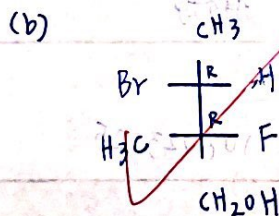 (b)
CH3
Br R H
H3C R F
CH2OH